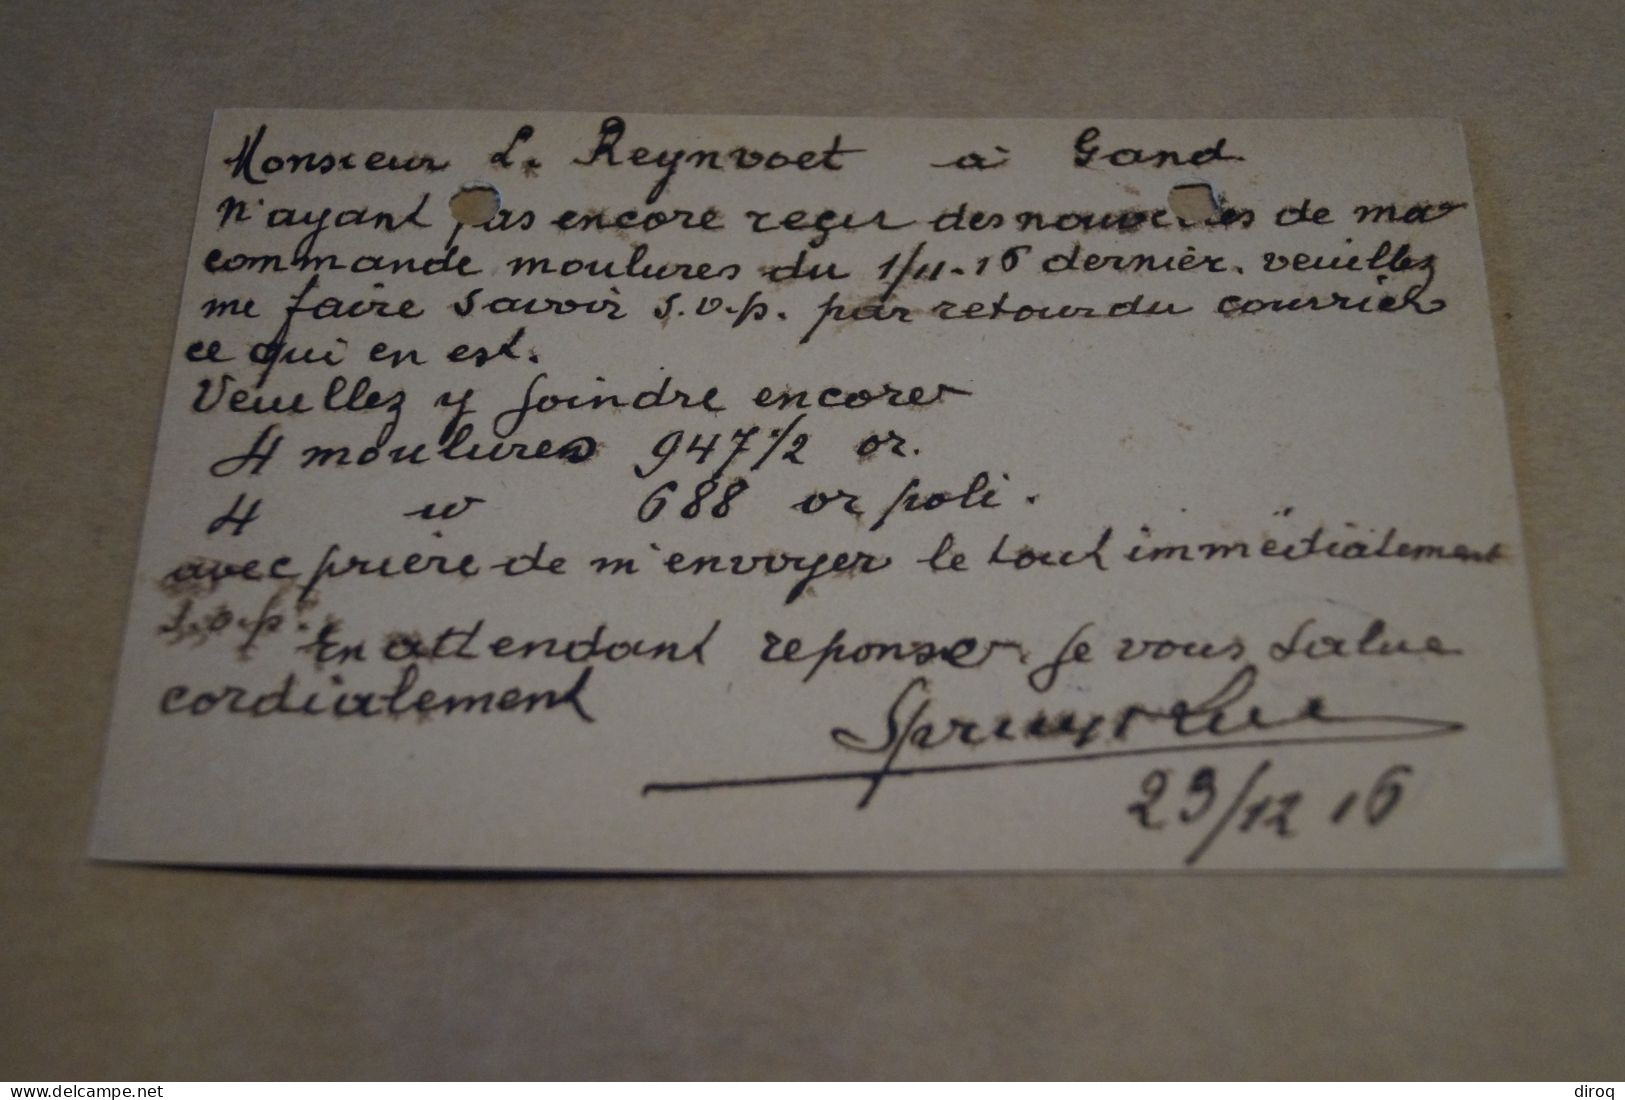 Monsieur L. Reynvoet à Gand
N'ayant pas encore reçu des nouvelles de ma
commande moulures du 1/11-16 dernier. veuillez
me faire savoir s.v.p. par retour du courrier
ce qui en est.
Veuillez y joindre encore
4 moulures 947 1/2 or.
4 " 688 or poli.
avec prière de m'envoyer le tout immédiatement
s.v.p. En attendant reponse je vous salue
cordialement
23/12 16
www.delcampe.net
diroq